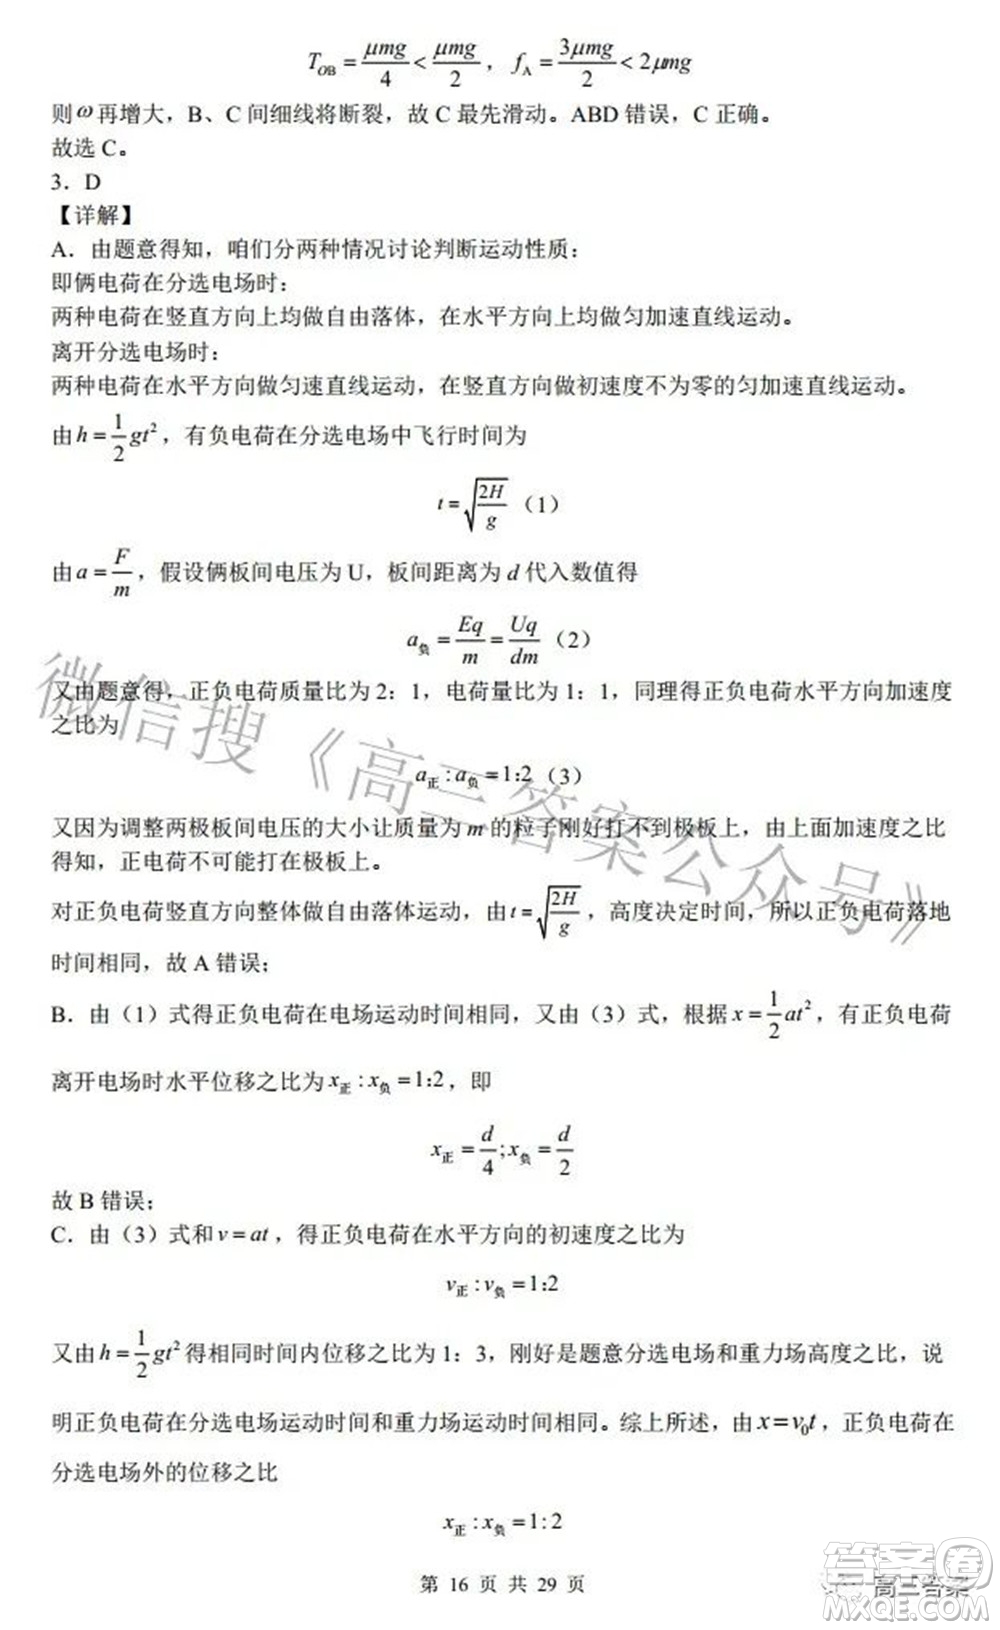 T_OB = μmg/4 < μmg/2，f_A = 3μmg/2 < 2μmg
则 ω 再增大，B、C 间细线将断裂，故 C 最先滑动。ABD 错误，C 正确。
故选 C。
3．D
【详解】
A．由题意得知，咱们分两种情况讨论判断运动性质：
即俩电荷在分选电场时：
两种电荷在竖直方向上均做自由落体，在水平方向上均做匀加速直线运动。
离开分选电场时：
两种电荷在水平方向做匀速直线运动，在竖直方向做初速度不为零的匀加速直线运动。
由 h = 1/2 gt²，有负电荷在分选电场中飞行时间为
t = √(2H/g)（1）
由 a = F/m，假设俩板间电压为 U，板间距离为 d 代入数值得
a负 = Eq/m = Uq/dm（2）
又由题意得，正负电荷质量比为 2：1，电荷量比为 1：1，同理得正负电荷水平方向加速度
之比为
a正 : a负 = 1:2（3）
又因为调整两极板间电压的大小让质量为 m 的粒子刚好打不到极板上，由上面加速度之比
得知，正电荷不可能打在极板上。
对正负电荷竖直方向整体做自由落体运动，由 t = √(2H/g)，高度决定时间，所以正负电荷落地
时间相同，故 A 错误；
B．由（1）式得正负电荷在电场运动时间相同，又由（3）式，根据 x = 1/2 at²，有正负电荷
离开电场时水平位移之比为 x正 : x负 = 1:2，即
x正 = d/4 ; x负 = d/2
故 B 错误；
C．由（3）式和 v = at，得正负电荷在水平方向的初速度之比为
v正 : v负 = 1:2
又由 h = 1/2 gt² 得相同时间内位移之比为 1：3，刚好是题意分选电场和重力场高度之比，说
明正负电荷在分选电场运动时间和重力场运动时间相同。综上所述，由 x = v₀t，正负电荷在
分选电场外的位移之比
x正 : x负 = 1:2
第 16 页 共 29 页
微信搜《高三答案公众号》
高三答案
答案圈
MXQE.COM